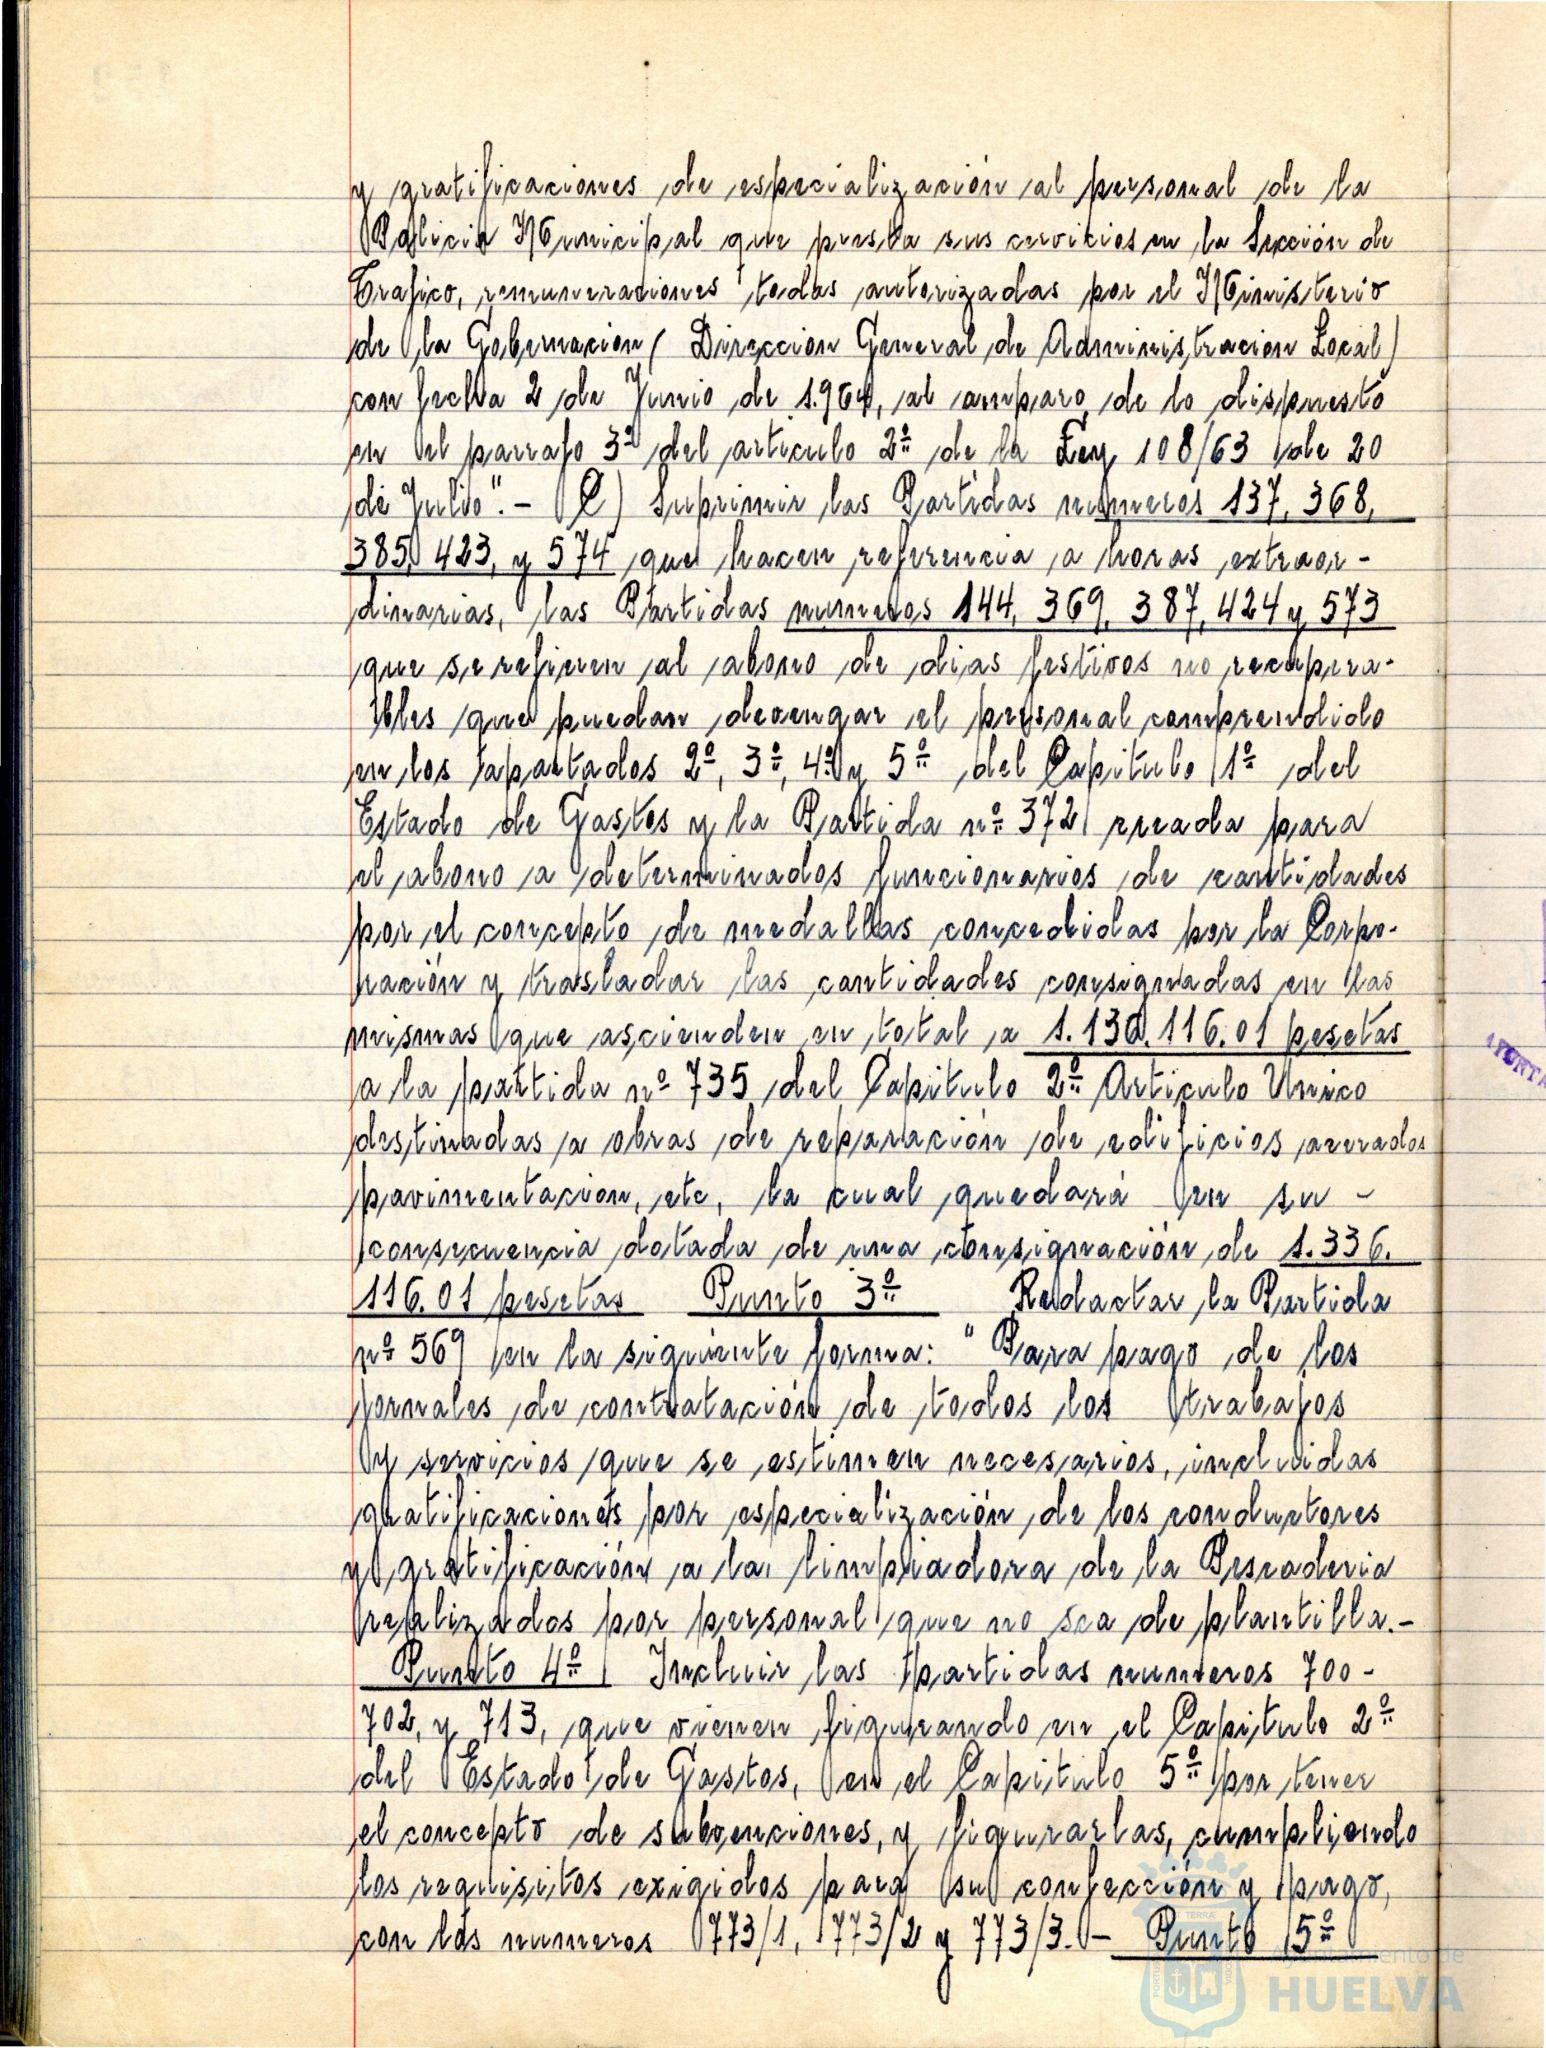 y gratificaciones de especialización al personal de la
Policia Municipal que presta sus servicios en la Sección de
Trafico, remuneraciones todas autorizadas por el Ministerio
de la Gobernacion (Dirección General de Administración Local)
con fecha 2 de Junio de 1.964, al amparo de lo dispuesto
en el parrafo 3º del articulo 2º de la Ley 108/63 de 20
de Julio".- C) Suprimir las Partidas numeros 137, 368,
385, 423, y 574 que hacen referencia a horas extraor-
dinarias, las Partidas numeros 144, 369, 387, 424 y 573
que se refieren al abono de dias festivos no recupera-
bles que puedan devengar el personal comprendido
en los apartados 2º, 3º, 4º y 5º del Capitulo 1º del
Estado de Gastos y la Partida nº 372 creada para
el abono a determinados funcionarios de cantidades
por el concepto de medallas concedidas por la Corpo-
ración y trasladar las cantidades consignadas en las
mismas que ascienden en total a 1.130.116.01 pesetas
a la partida nº 735 del Capitulo 2º Articulo Unico
destinadas a obras de reparación de edificios acerados
pavimentacion, etc, la cual quedará en su -
consecuencia dotada de una consignación de 1.336.
116.01 pesetas Punto 3º Redactar la Partida
nº 569 en la siguiente forma: "Para pago de los
jornales de contratación de todos los trabajos
y servicios que se estimen necesarios, incluidas
gratificaciones por especialización de los conductores
y gratificación a la limpiadora de la Pescaderia
realizados por personal que no sea de plantilla.-
Punto 4º Incluir las partidas numeros 700-
702, y 713, que vienen figurando en el Capitulo 2º
del Estado de Gastos, en el Capitulo 5º por tener
el concepto de subvenciones, y figurarlas, cumpliendo
los requisitos exigidos para su confección y pago,
con los numeros 773/1, 773/2 y 773/3.- Punto 5º
Ayuntamiento de
HUELVA